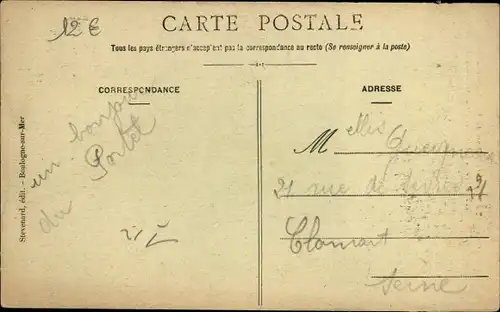 12 €
CARTE POSTALE
Tous les pays étrangers n'acceptent pas la correspondance au recto (Se renseigner à la poste)
CORRESPONDANCE
un bonjour
du Portel
Stevenard, édit. - Boulogne-sur-Mer
ADRESSE
Melles
21 rue de 21
Clamart
Seine